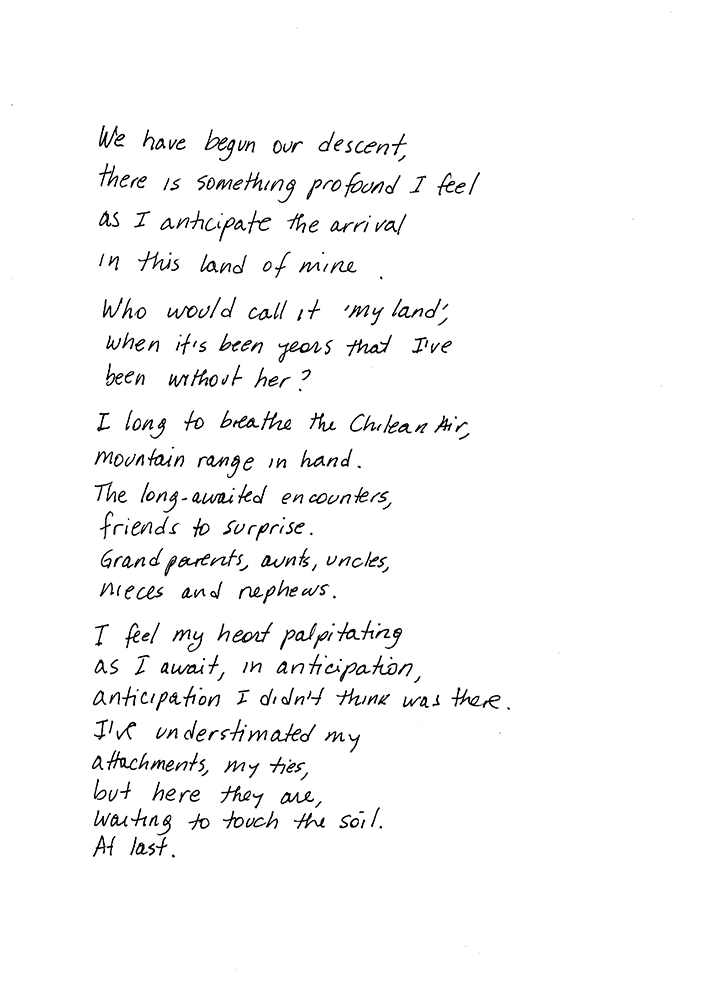 We have begun our descent,
there is something profound I feel
as I anticipate the arrival
in this land of mine.
Who would call it 'my land',
when it's been years that I've
been without her?
I long to breathe the Chilean Air,
mountain range in hand.
The long-awaited encounters,
friends to surprise.
Grandparents, aunts, uncles,
nieces and nephews.
I feel my heart palpitating
as I await, in anticipation,
anticipation I didn't think was there.
I've understimated my
attachments, my ties,
but here they are,
waiting to touch the soil.
At last.